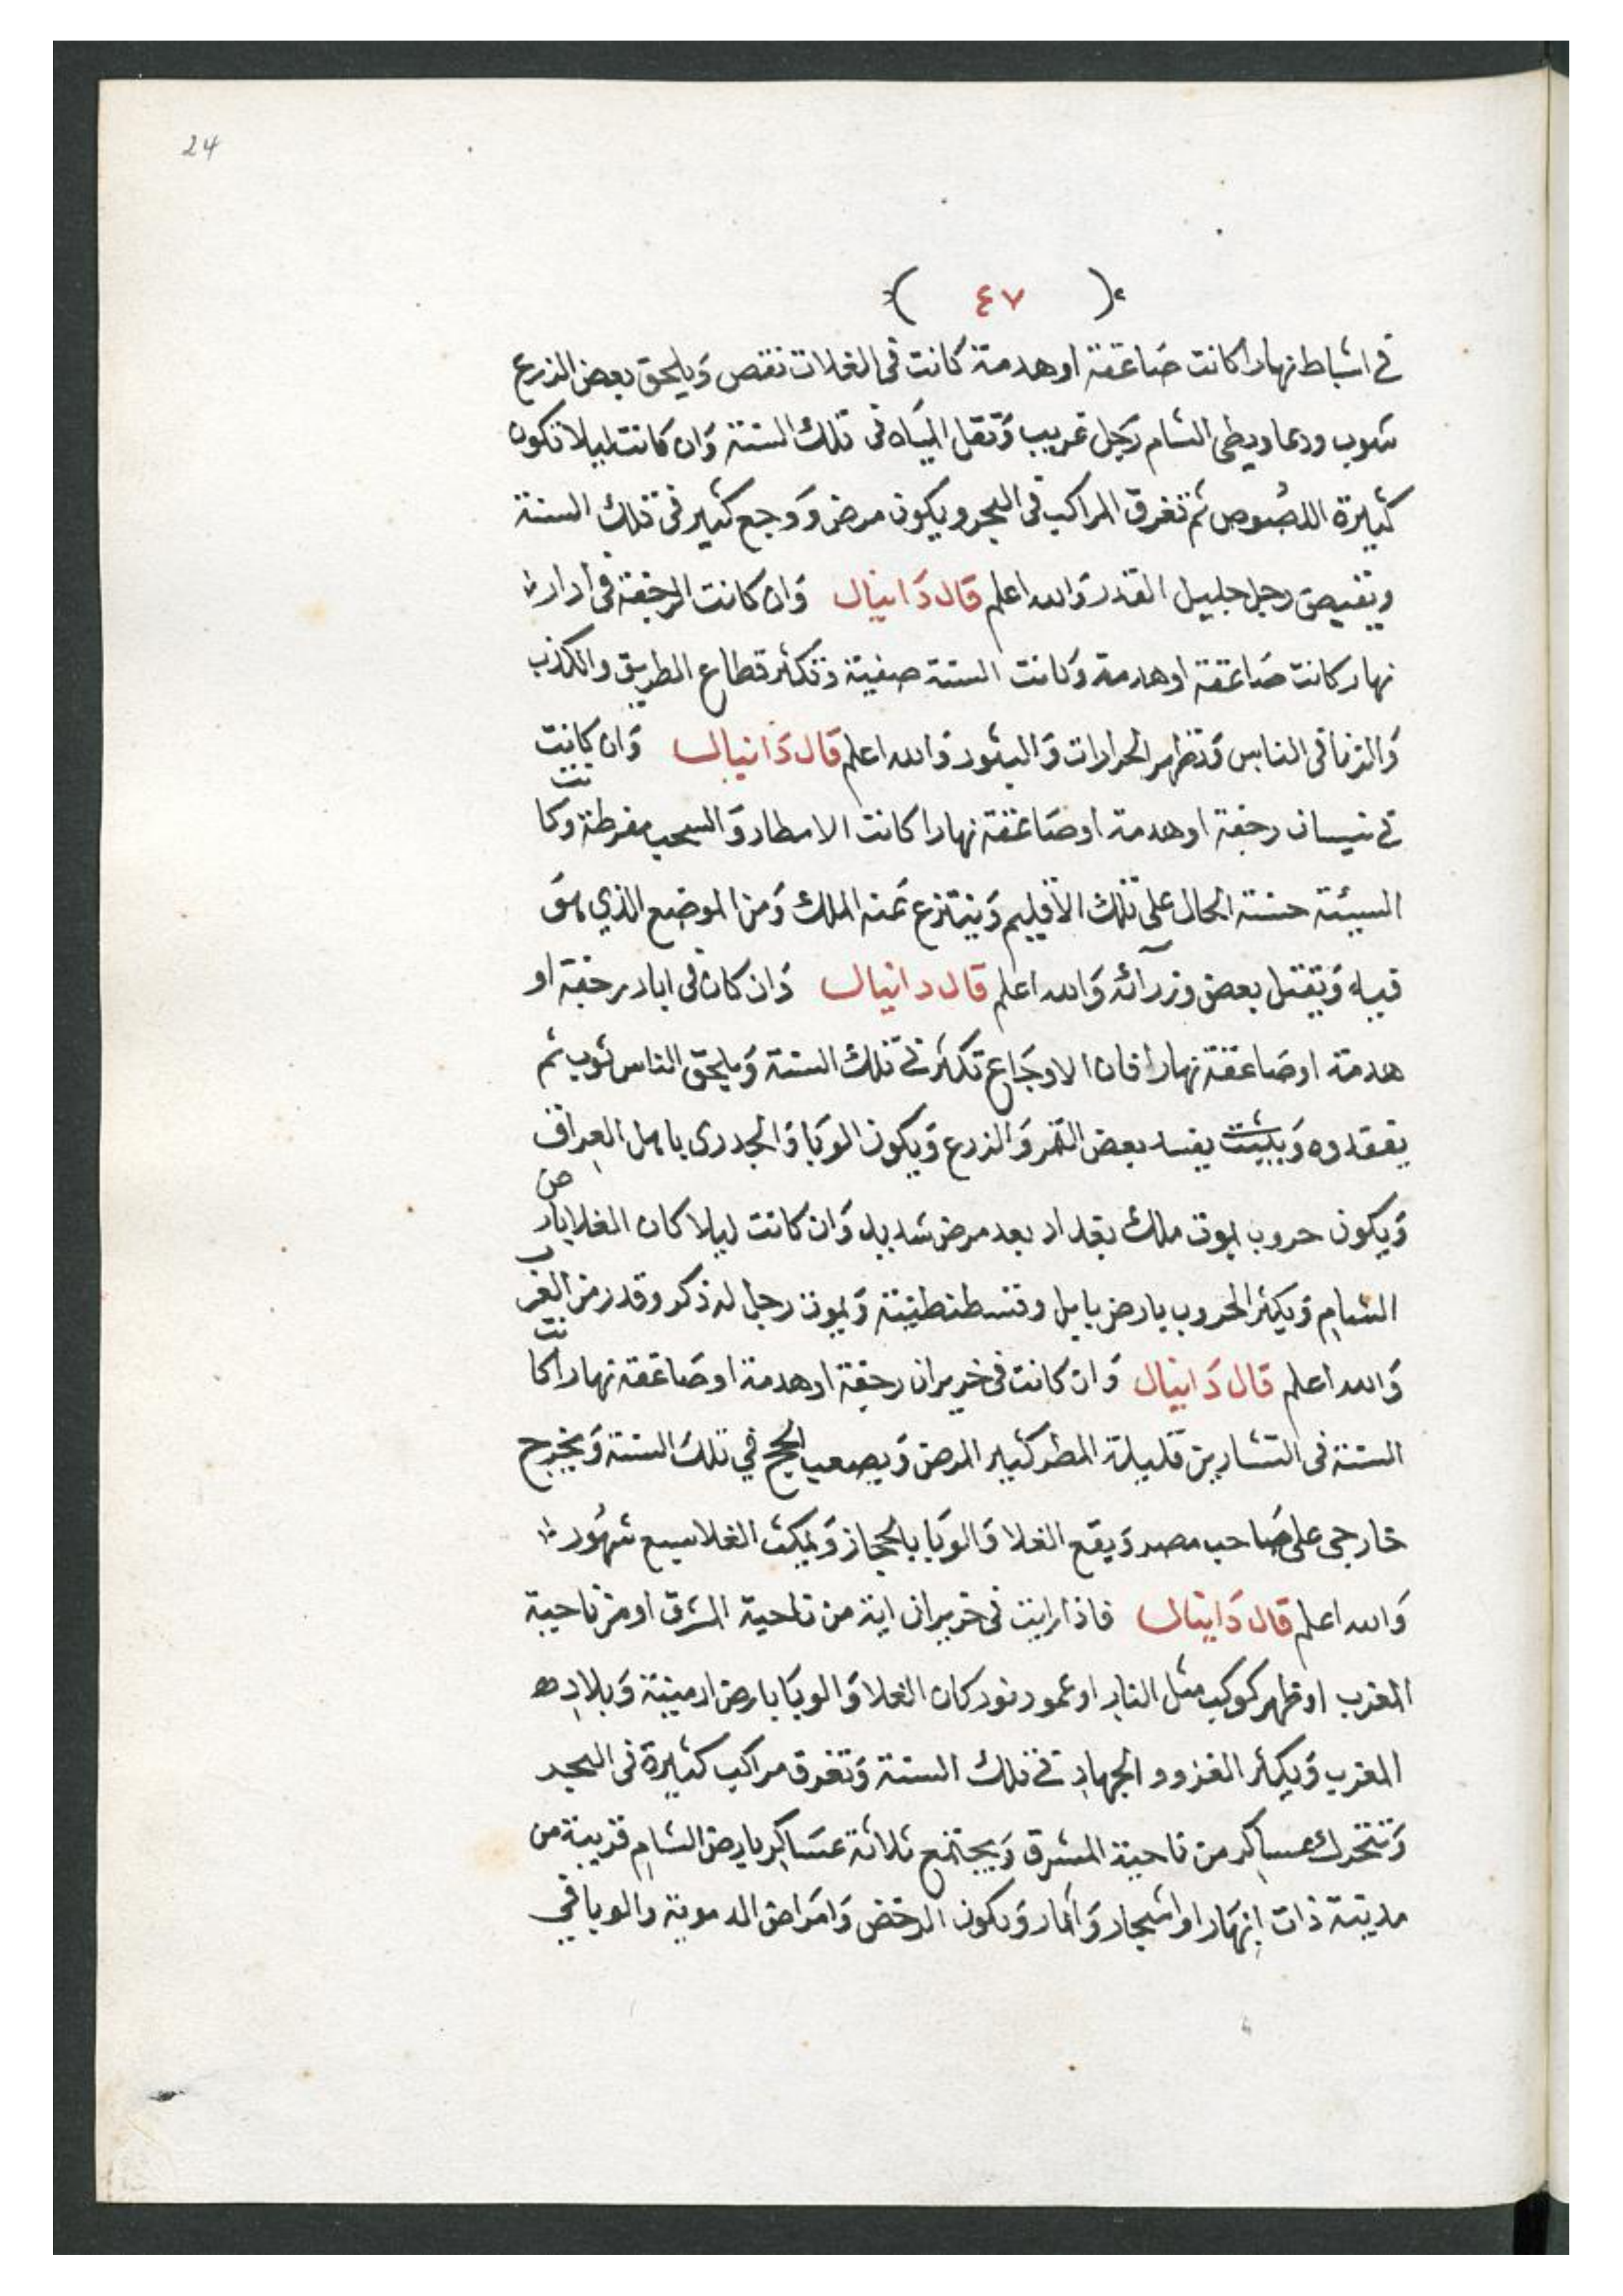 24
( ٤٧ )
في اشباط نهارا كانت صَاعقة او هدمة كانت في الغلات نقص وَيلحق بعض الزرع
شوب وربما ويطى الشام رَجل غريب وَتقل الميَاه فى تلك السنة وَان كانت ليلا تكون
كثيرة اللصُوص ثم تغرق المراكب فى البحر ويكون مرض ووجع كثير فى تلك السنة
رجل جليل القدر وَالله اعلم قال دَانيال وَان كانت الرجفة فى ادار
نهار كانت صَاعقة او هدمة وَكانت السنة صيفية وتكثر قطاع الطريق والكذب
وَالزنا فى الناس وَتظهر الحرارات وَالبثور وَالله اعلم قال دَانيال وَان كانت
في نيسان رجفة او هدمة او صَاعقة نهارا كانت الامطار وَالسحب مفرطة وكانت
السيئة حسنة الحال على تلك الاقليم وَينتزع عَنه الملك وَمن الموضع الذي هوَ
فيه وَيقتل بعض وزرآئه وَالله اعلم قال دانيال وَان كان فى ايار رجفة او
هدمة او صَاعقة نهارا فان الاوجَاع تكثر في تلك السنة وَيلحق الناس ثوب ثم
يفقدوه وَ يفسد بعض الثمر وَالزرع وَيكون الوبَا وَالجدرى باهل العراق
وَيكون حروب يموت ملك بغداد بعد مرض شديد وَان كانت ليلا كان الغلا بارض
الشام وَيكثر الحروب بارض بابل وقسطنطينة وَيموت رجل له ذكر وقدر من الغرب
وَالله اعلم قال دَانيال وَان كانت فى خزيران رجفة او هدمة او صَاعقة نهارا كانت
السنة فى التشارين قليلة المطر كثير المرض وَيصعب الحج في تلك السنة وَيخرج
خارجى على صَاحب مصر وَيقع الغلا وَالوبَا بالحجاز وَيمكث الغلا سبع شهُور
وَالله اعلم قال دَانيال فاذا رايت فى خزيران اية من ناحية الشرق او من ناحية
المغرب او ظهر كوكب مثل النار او عمود نور كان الغلا وَالوبَا بارض ارمينية وَبلاد
المغرب وَيكثر الغزو و الجهاد في تلك السنة وَتغرق مراكب كثيرة فى البحر
وَتتحرك عساكر من ناحية المشرق وَيجتمع ثلاثة عسَاكر بارض الشام قريبة من
مدينة ذات انهَار او اشجار وَاثمار وَيكون الرخص وَامَراض الدموية والوبا في